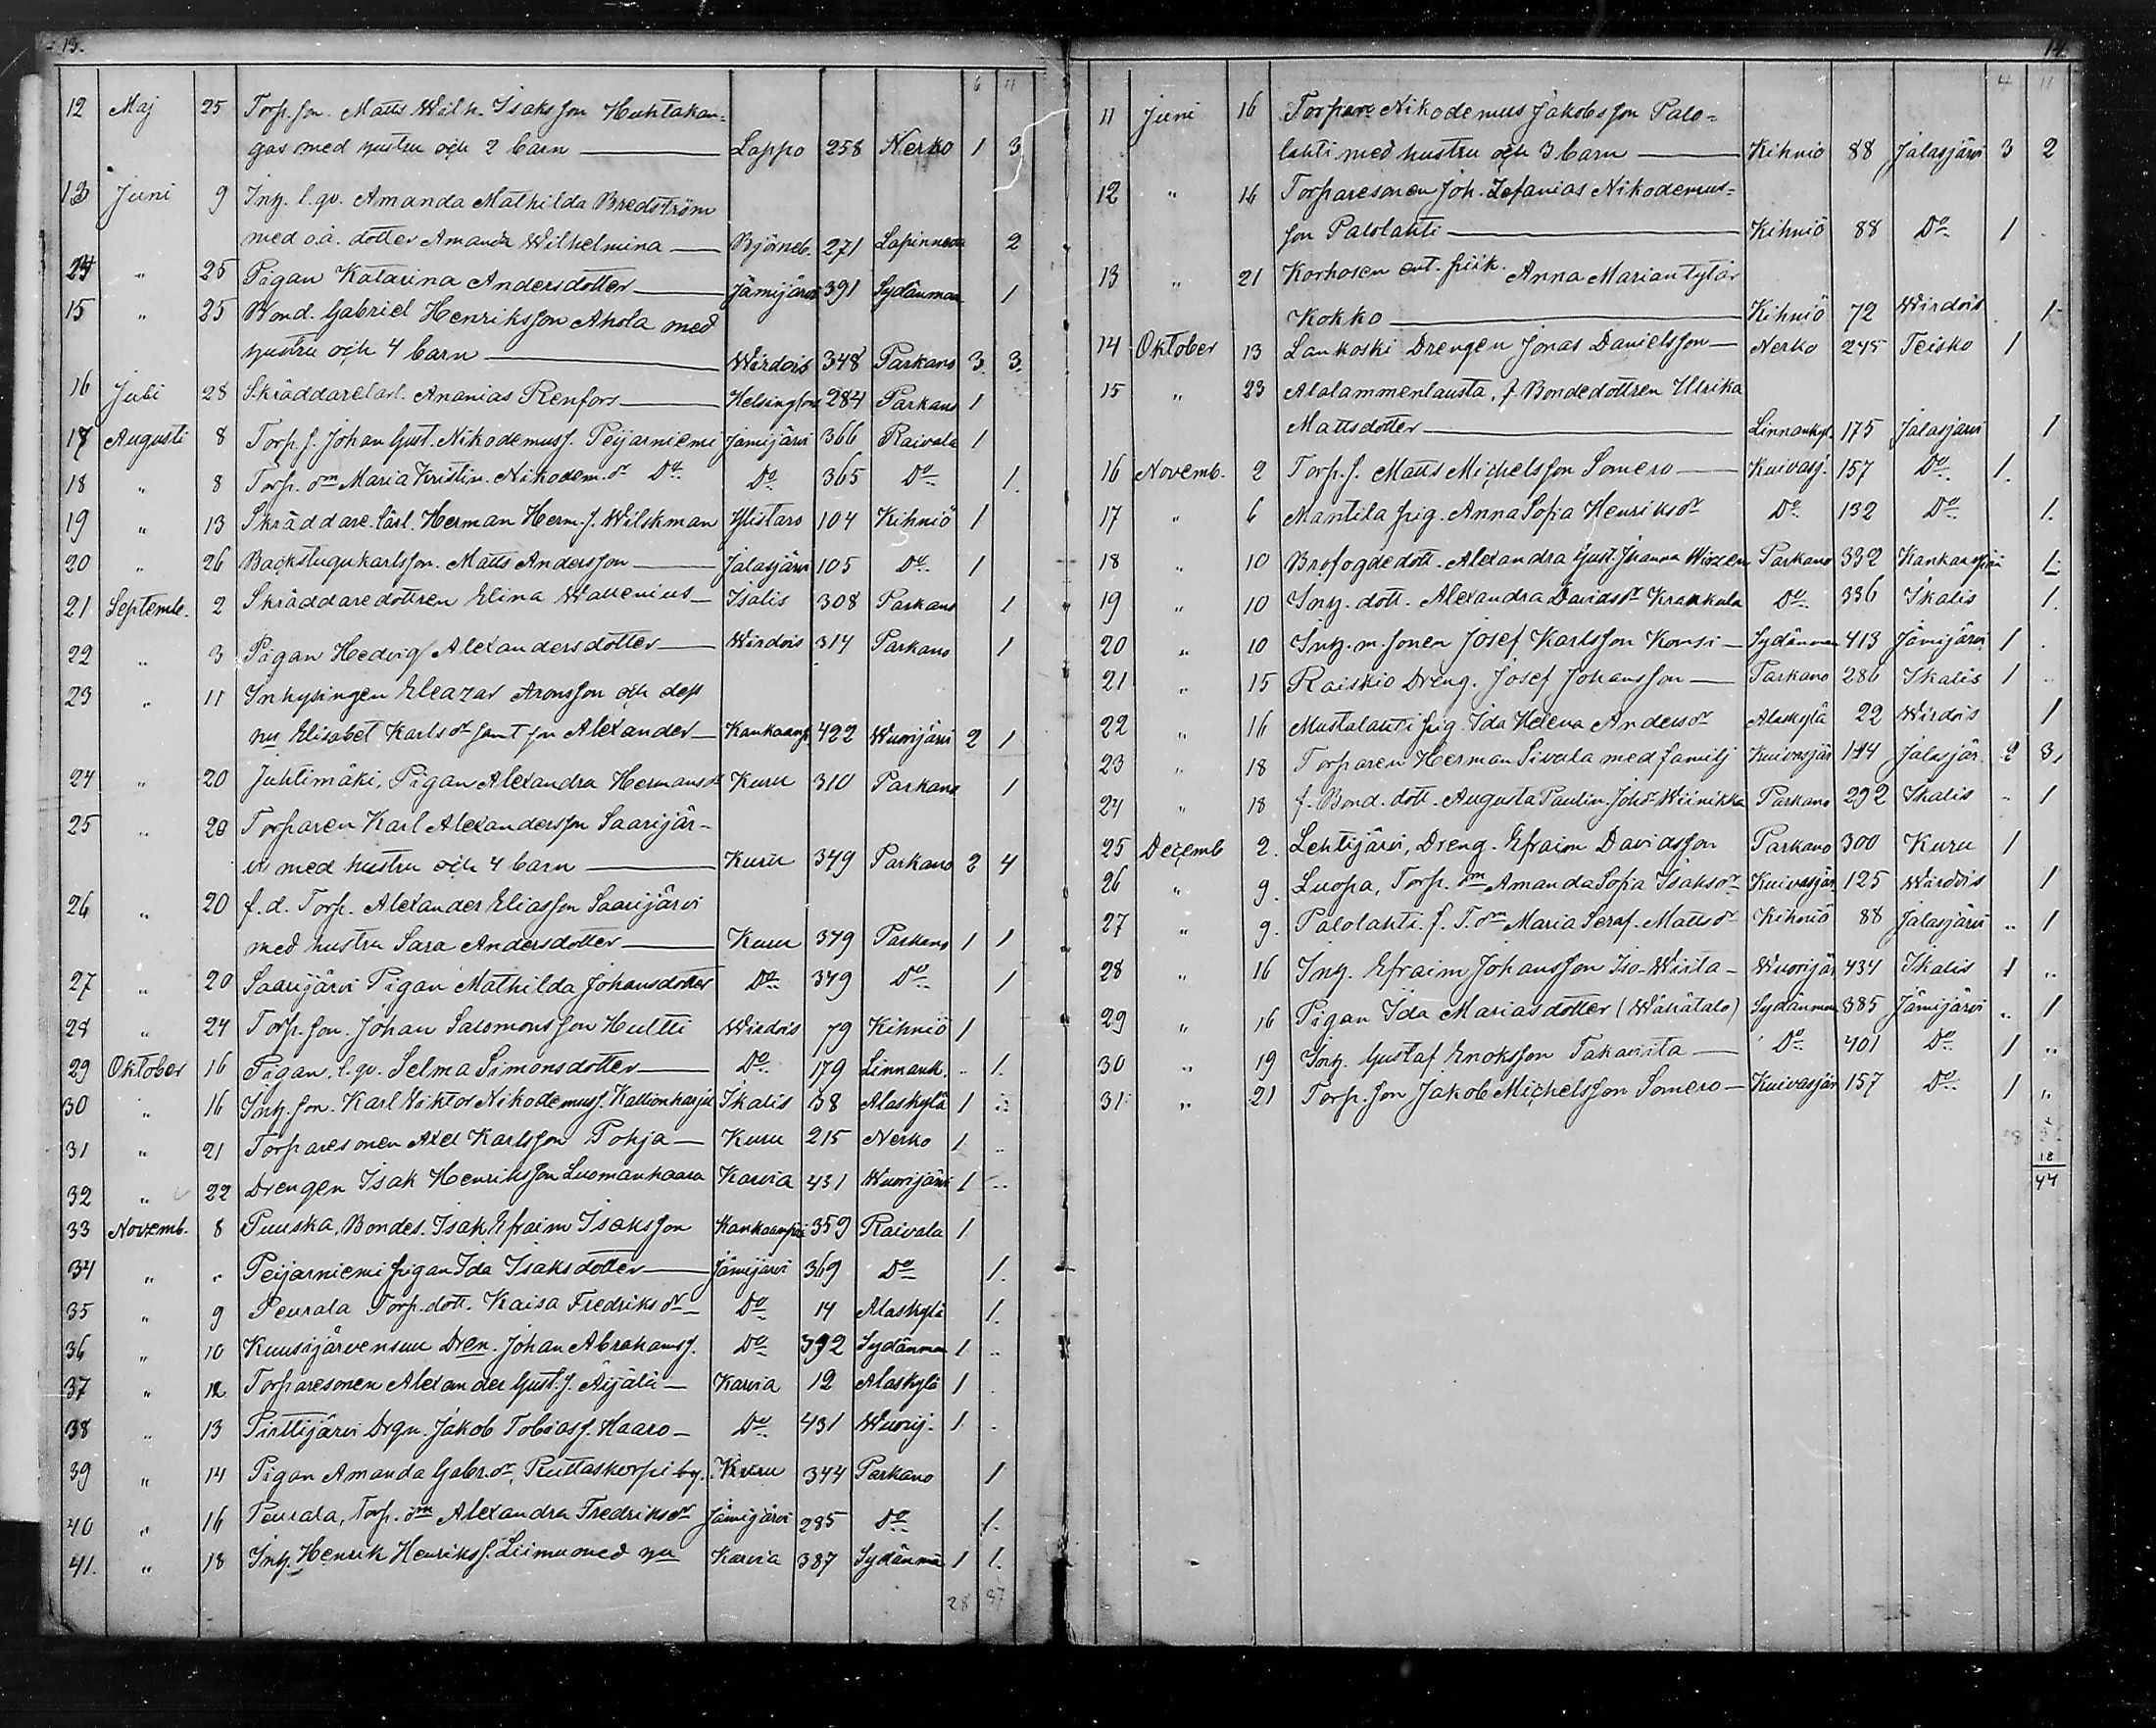 13.
6 11
12 Maj 25 Torp. son. Matts Wilh. Isaksson Huhtakan=
gas med hustru och 2 barn — Lappo 258 Nerko 1 3
13 Juni 9 Inh. l. qv. Amanda Mathilda Bredström
med o.ä. dotter Amanda Wilhelmina — Björneb. 271 Lapinneva 2
24 " 25 Pigan Katarina Andersdotter — Jämijärvi 391 Sydänmaa 1
15 " 25 Bond. Gabriel Henriksson Ahola med
hustru och 4 barn — Wirdois 348 Parkano 3. 3.
16 Juli 28 Skräddarelärl. Ananias Renfors — Helsingfors 284 Parkano 1
17 Augusti 8 Torp. s. Johan Gust. Nikodemuss. Peijarniemi Jämijärvi 366 Raivala 1
18 " 8 Torp. dm Maria Kristin. Nikodem. dr Do Do 365 Do 1.
19 " 13 Skräddare lärl. Herman Herm. s. Wilskman Ylistaro 104 Kihniö 1
20 " 26 Backstugukarlsson. Matts Andersson — Jalasjärvi 105 Do 1
21 Septemb. 2 Skräddaredottren Elina Wallenius — Ikalis 308 Parkano 1
22 " 3 Pigan Hedvig Alexandersdotter — Wirdois 314 Parkano 1
23 " 11 Inhysingen Eleazar Aronsson och dess
hu Elisabet Karlsdr samt son Alexander — Kankaanp. 422 Wuorijärvi 2 1
24 " 20 Juhtimäki, Pigan Alexandra Hermansdr Kuru 310 Parkano 1
25 " 20 Torparen Karl Alexandersson Saarijär-
vi med hustru och 4 barn — Kuru 349 Parkano 2 4
26 " 20 f. d. Torp. Alexander Eliasson Saarijärvi
med hustru Sara Andersdotter — Kuru 349 Parkano 1 1
27 " 20 Saarijärvi Pigan Mathilda Johansdotter Do 349 Do 1
28 " 24 Torp. son. Johan Salomonsson Hultti Wirdois 79 Kihniö 1
29 Oktober 16 Pigan. l. qv. Selma Simonsdotter — Do 179 Linnank. " 1.
30 " 16 Inh. son. Karl Viktor Nikodemuss. Kallionharju Ikalis 38 Alaskylä 1 "
31 " 21 Torparesonen Axel Karlsson Pohja — Kuru 215 Nerko 1. "
32 " 22 Drengen Isak Henriksson Luomanhaara Karvia 431 Wuorijärvi 1 "
33 Novemb. 8 Puuska, Bondes. Isak Efraim Isaksson Kankaanpää 359 Raivala 1
34 " " Peijarniemi pigan Ida Isaksdotter — Jämijärvi 369 Do 1.
35 " 9 Peurala Torp. dott. Kaisa Fredriksdr — Do 14 Alaskylä 1.
36 " 10 Kuusijärvensuu Dren. Johan Abrahams s. Do 392 Sydänmaa 1 "
37 " 12 Torparesonen Alexander Gust. s. Äijälä — Karvia 12 Alaskylä 1 "
38 " 13 Pirttijärvi Drgn. Jakob Tobiass. Haaro — Do 431 Wuorij. 1 "
39 " 14 Pigan Amanda Gabr. dr, Ruttaskorpi by. Kuru 344 Parkano 1
40 " 16 Peurala, Torp. dm Alexandra Fredriksdr Jämijärvi 285 Do 1.
41. " 18 Inh. Henrik Henrikss. Liimu med hu Karvia 387 Sydänmä 1 1.
28 37
14.
4 11
11 Juni 16 Torpare Nikodemus Jakobsson Palo=
lahti med hustru och 3 barn — Kihniö 88 Jalasjärvi 3 2
12 " 16 Torparesonen Joh. Zefanias Nikodemus-
son Palolahti — Kihniö 88 Do 1
13 " 21 Korhosen ent. piik. Anna Mariantytär
Kokko — Kihniö 72 Wirdois 1.
14 Oktober 13 Lankoski Drengen Jonas Danielsson — Nerko 245 Teisko 1
15 " 23 Alalammentausta, f. Bondedottren Ulrika
Mattsdotter — Linnankyl. 175 Jalasjärvi 1
16 Novemb. 2 Torp. s. Matts Michelsson Somero — Kuivasj. 157 Do 1.
17 " 6 Mantila pig. Anna Sofia Henriksdr Do 132 Do 1.
18 " 10 Brofogdedott. Alexandra Gust. Juanna Wirzen Parkano 332 Kankaanpää 1.
19 " 10 Inh. dott. Alexandra Davidsdr Kraakula Do 336 Ikalis 1.
20 " 10 Inh. m. sonen Josef Karlsson Komsi — Sydänmaa 413 Jämijärvi 1
21 " 15 Raiskio Dreng. Josef Johansson — Parkano 286 Ikalis 1 "
22 " 16 Mustalahti pig. Ida Helena Andersdr Alaskylä 22 Wirdois 1
23 " 18 Torparen Herman Sivula med familj Kuivasjär 144 Jalasjär. 2 3,
24 " 18 f. Bond. dott. Augusta Paulin. Johdr Wiinikka Parkano 292 Ikalis " 1
25 Decemb 2. Lehtijärvi, Dreng. Efraim Davidsson Parkano 300 Kuru 1
26 " 9. Luopa, Torp. dm Amanda Sofia Isaksdr Kuivasjär. 125 Wirdois 1
27 " 9. Palolahti. f. T. dm Maria Seraf. Mattsdr Kihniö 88 Jalasjärvi " 1
28 " 16 Inh. Efraim Johansson Iso-Wiita — Wuorijär 434 Ikalis 1 "
29 " 16 Pigan Ida Mariasdotter (Wähätalo) Sydänmaa 385 Jämijärvi " 1
30 " 19 Inh. Gustaf Enoksson Takaviita — Do 401 Do 1 "
31 " 21 Torp. son Jakob Michelsson Somero — Kuivasjär 157 Do 1 "
18
44